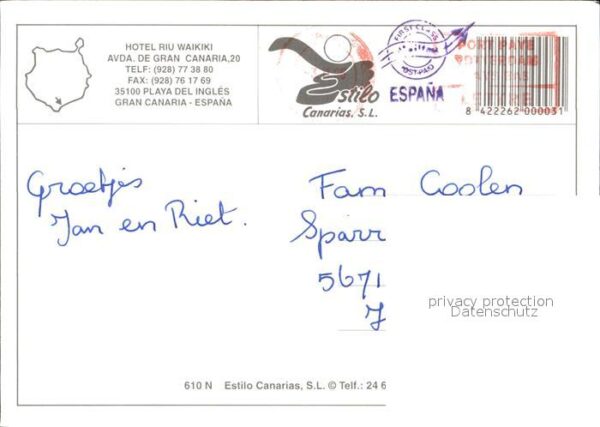 HOTEL RIU WAIKIKI
AVDA. DE GRAN CANARIA,20
TELF: (928) 77 38 80
FAX: (928) 76 17 69
35100 PLAYA DEL INGLÉS
GRAN CANARIA - ESPAÑA
Estilo
Canarias, S.L.
FIRST CLASS
POST-PAID
ESPAÑA
PORT PAYE
ROTTERDAM
8 422262 000031
Groetjes
Jan en Riet.
Fam Coolen
Sparr
5671
J
privacy protection
Datenschutz
610 N Estilo Canarias, S.L. © Telf.: 24 6